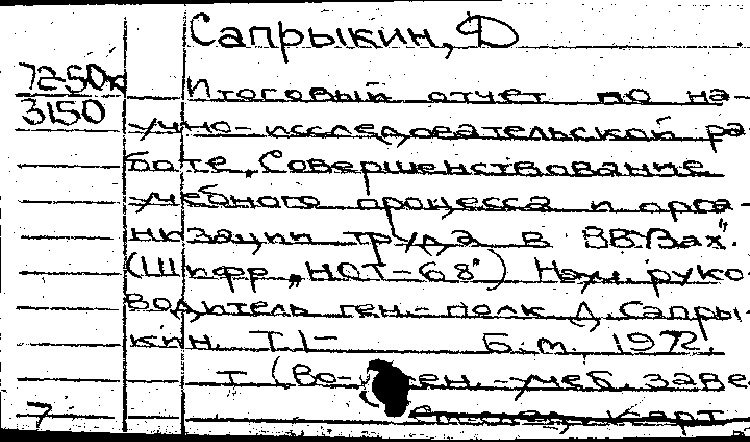 Сапрыкин, Д
72-50к
3150
Итоговый отчет по на-
учно-исследовательской ра
боте „Совершенствование
учебного процесса и орга-
низации труда в ВВУЗах".
(Шифр „НОТ-68") Науч. руко-
водитель ген.-полк Д. Сапры-
кин. Т. 1- Б.м. 1972.
т (Во- ен.-учеб. заве
7 карт